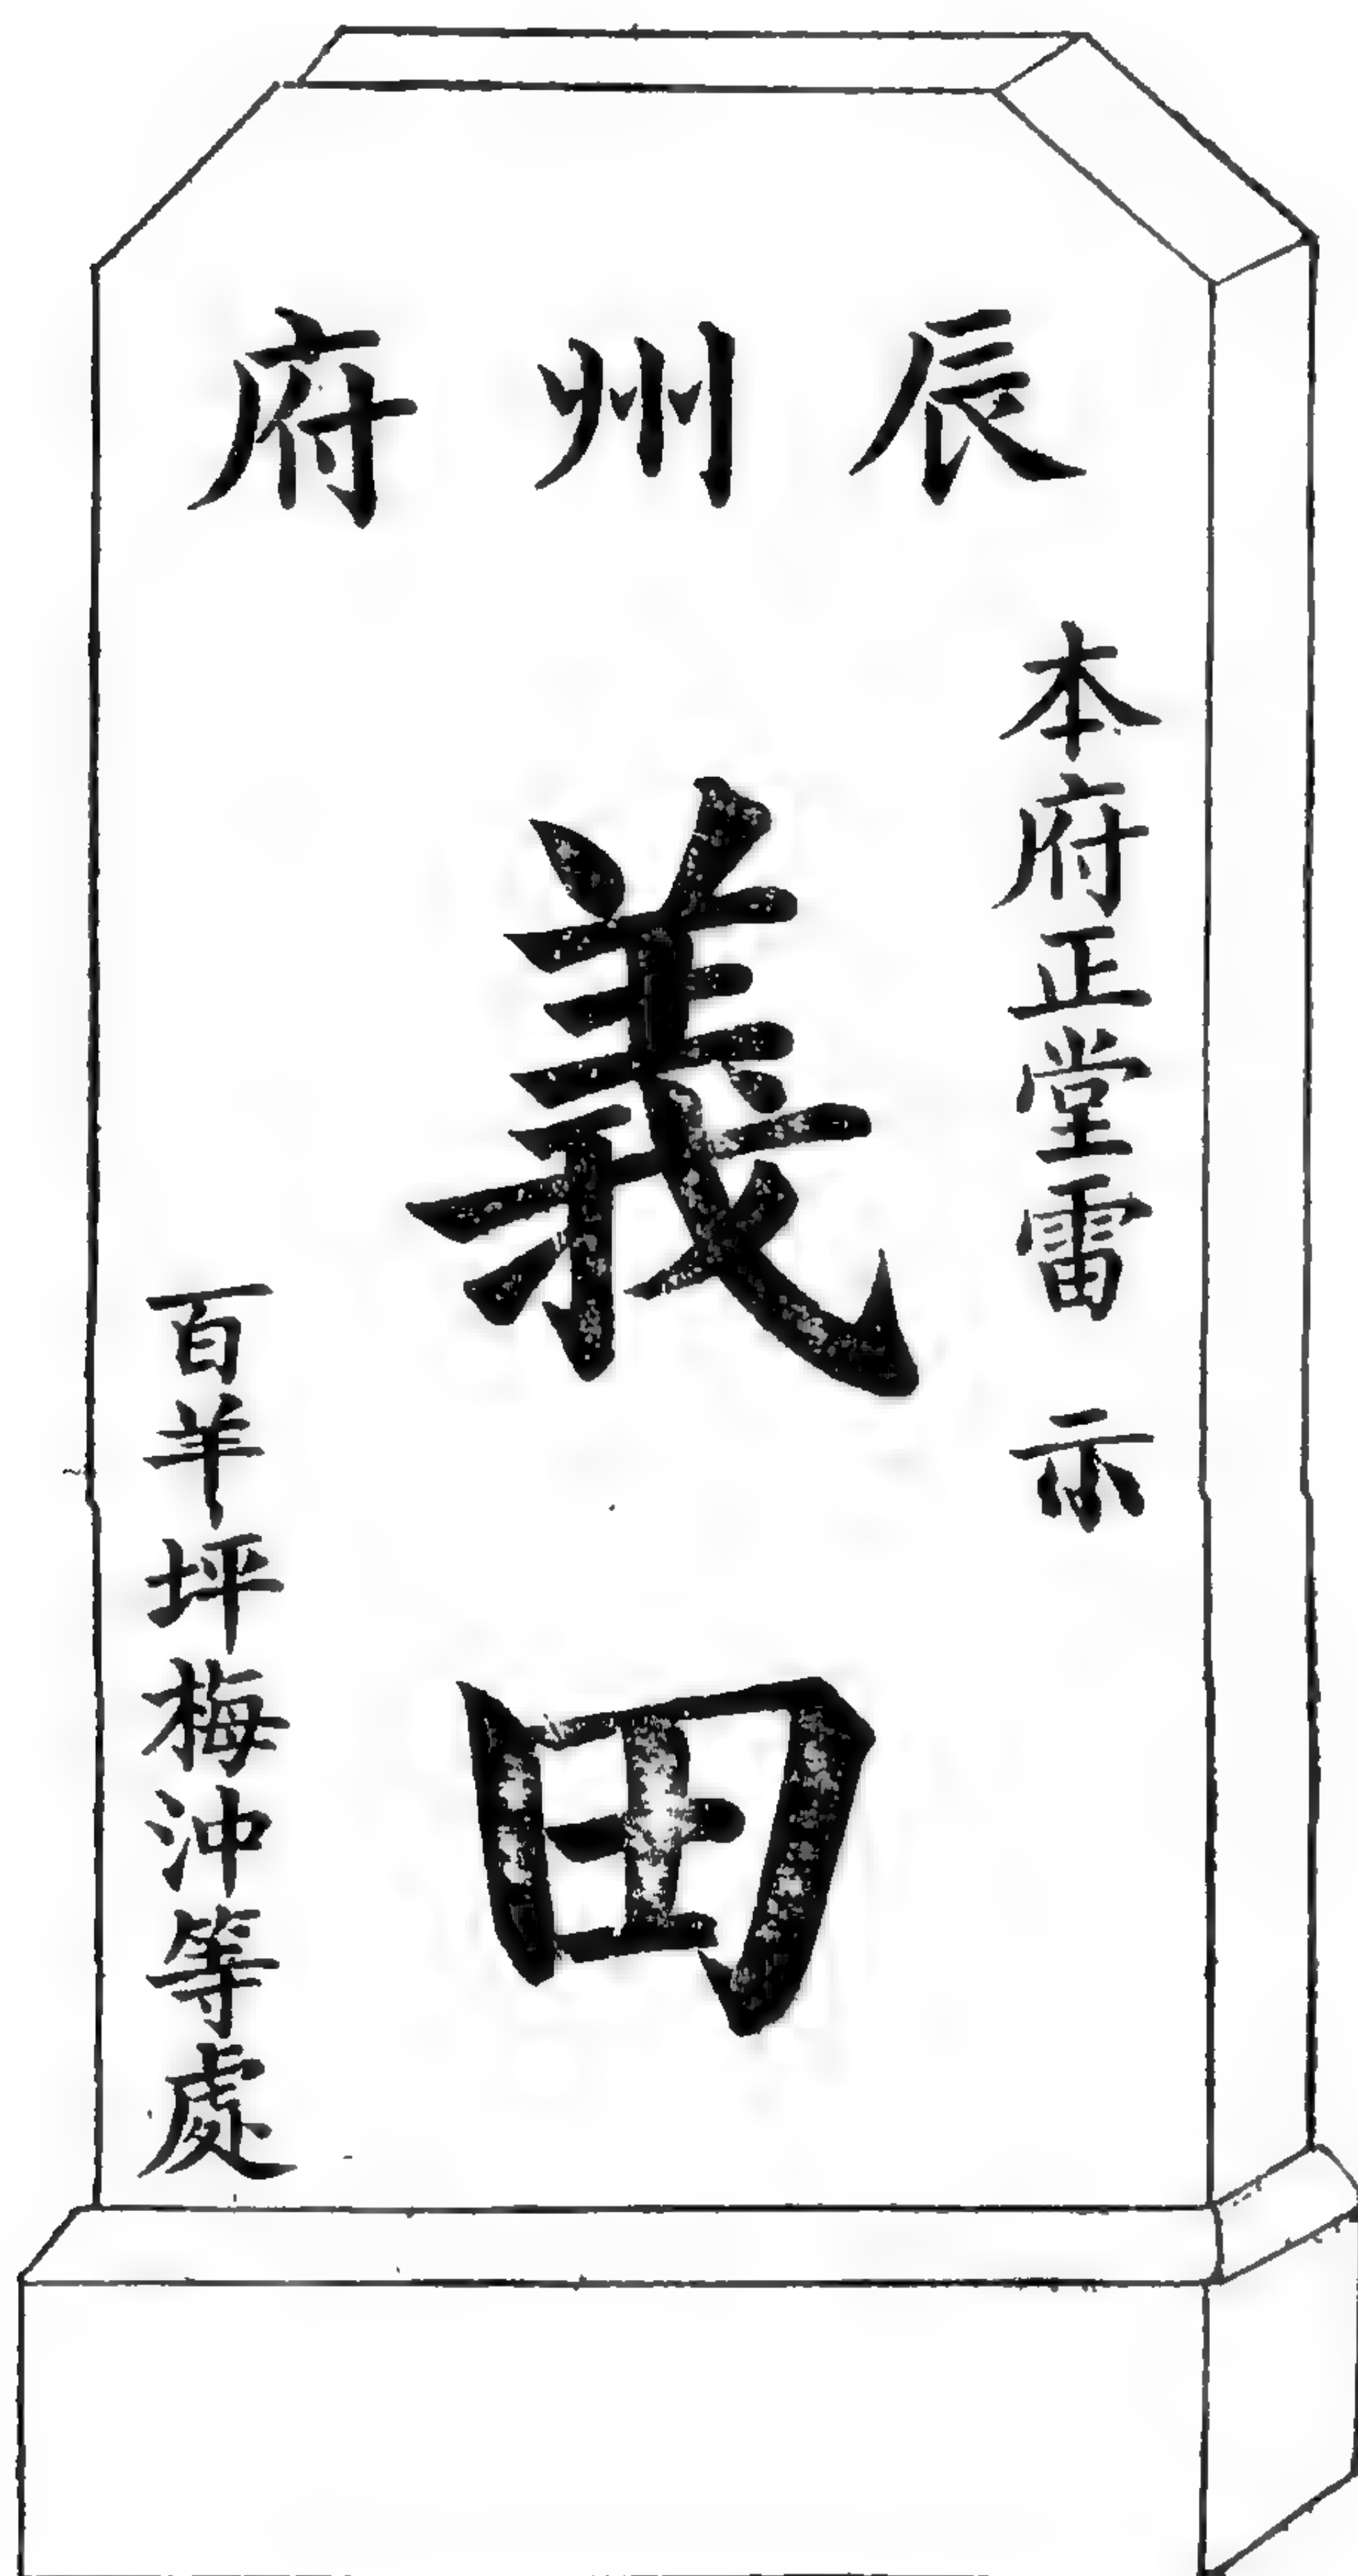 辰州府
本府正堂雷 示
義田
百羊坪梅沖等處